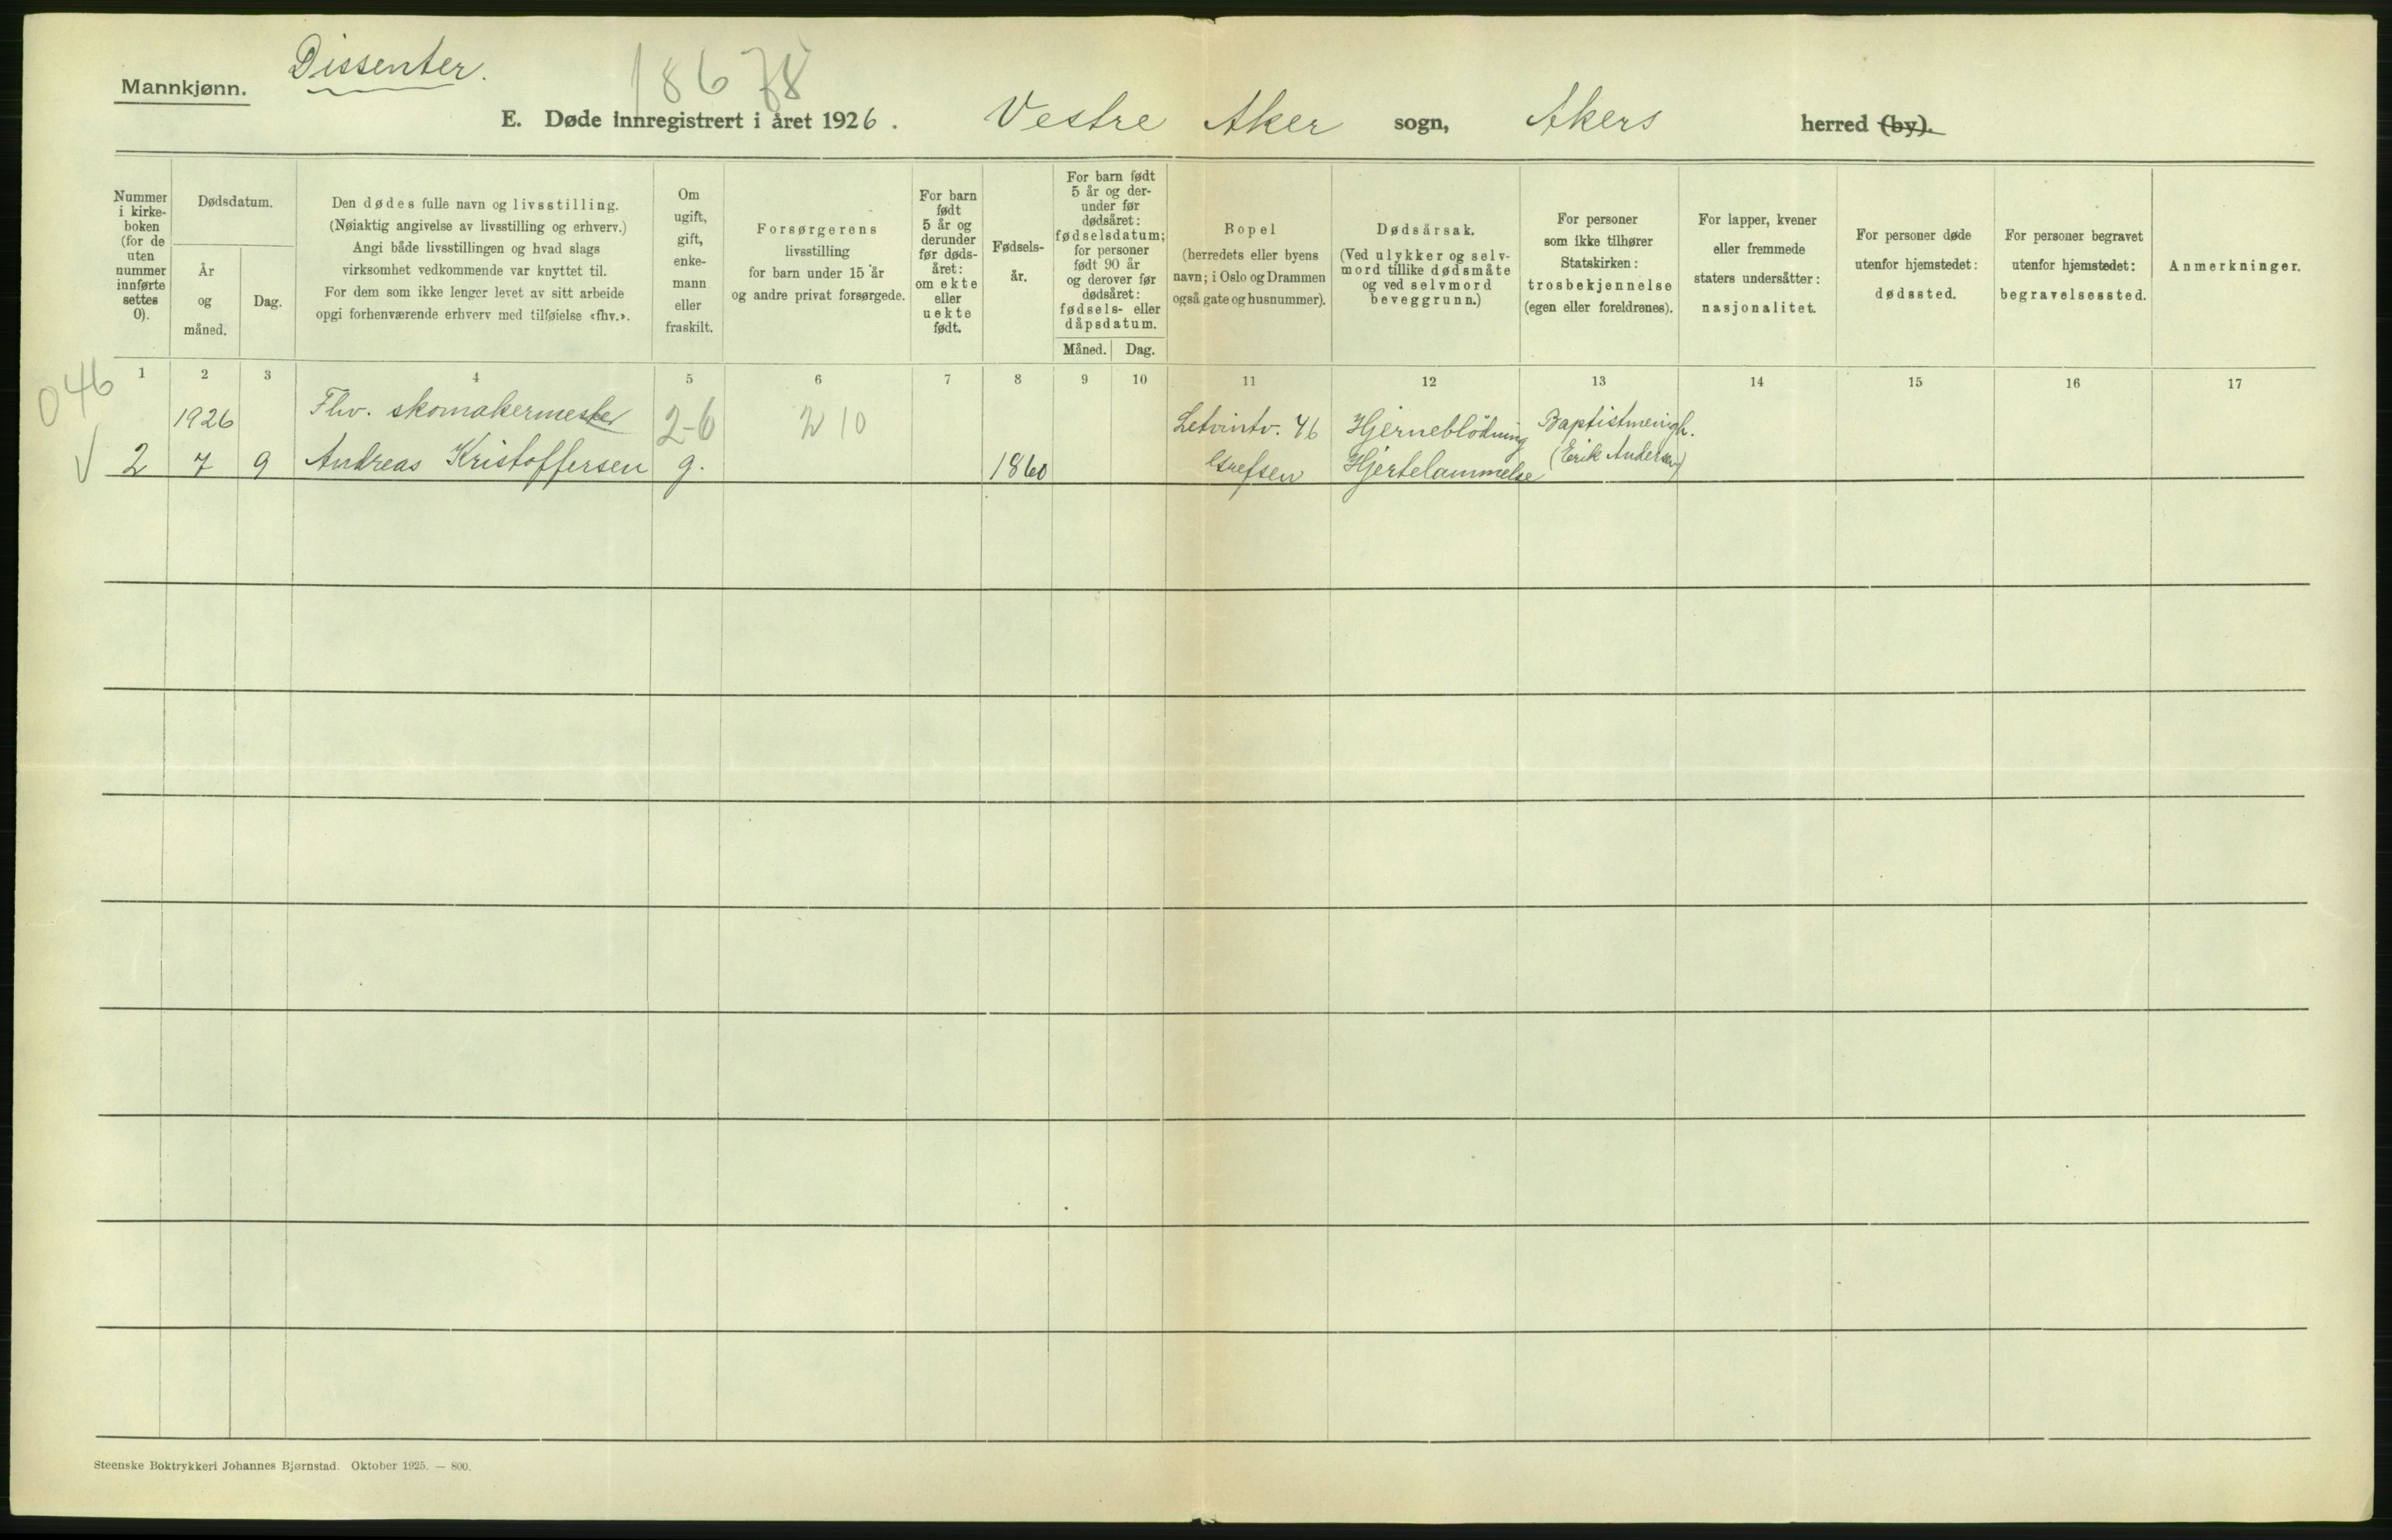 Mannkjønn.
Dissenter.
18678
E. Døde innregistrert i året 1926.
Vestre Aker sogn, Akers herred (by).
Nummer
i kirke-
boken
(for de
uten
nummer
innførte
settes
0).
Dødsdatum.
År
og
måned.
Dag.
Den dødes fulle navn og livsstilling.
(Nøiaktig angivelse av livsstilling og erhverv.)
Angi både livsstillingen og hvad slags
virksomhet vedkommende var knyttet til.
For dem som ikke lenger levet av sitt arbeide
opgi forhenværende erhverv med tilføielse «fhv.».
Om
ugift,
gift,
enke-
mann
eller
fraskilt.
Forsørgerens
livsstilling
for barn under 15 år
og andre privat forsørgede.
For barn
født
5 år og
derunder
før døds-
året:
om ekte
eller
uekte
født.
Fødsels-
år.
For barn født
5 år og der-
under før
dødsåret:
fødselsdatum;
for personer
født 90 år
og derover før
dødsåret:
fødsels- eller
dåpsdatum.
Måned. Dag.
Bopel
(herredets eller byens
navn; i Oslo og Drammen
også gate og husnummer).
Dødsårsak.
(Ved ulykker og selv-
mord tillike dødsmåte
og ved selvmord
beveggrunn.)
For personer
som ikke tilhører
Statskirken:
trosbekjennelse
(egen eller foreldrenes).
For lapper, kvener
eller fremmede
staters undersåtter:
nasjonalitet.
For personer døde
utenfor hjemstedet:
dødssted.
For personer begravet
utenfor hjemstedet:
begravelsessted.
Anmerkninger.
1 2 3 4 5 6 7 8 9 10 11 12 13 14 15 16 17
046
1926 Fhv. skomakermester 2-6 2 10 Letvintv. 46 Hjerneblödning Baptistmenigh.
√ 2 7 9 Andreas Kristoffersen g. 1860 Grefsen Hjertelammelse (Erik Andersen)
Steenske Boktrykkeri Johannes Bjørnstad. Oktober 1925. — 800.